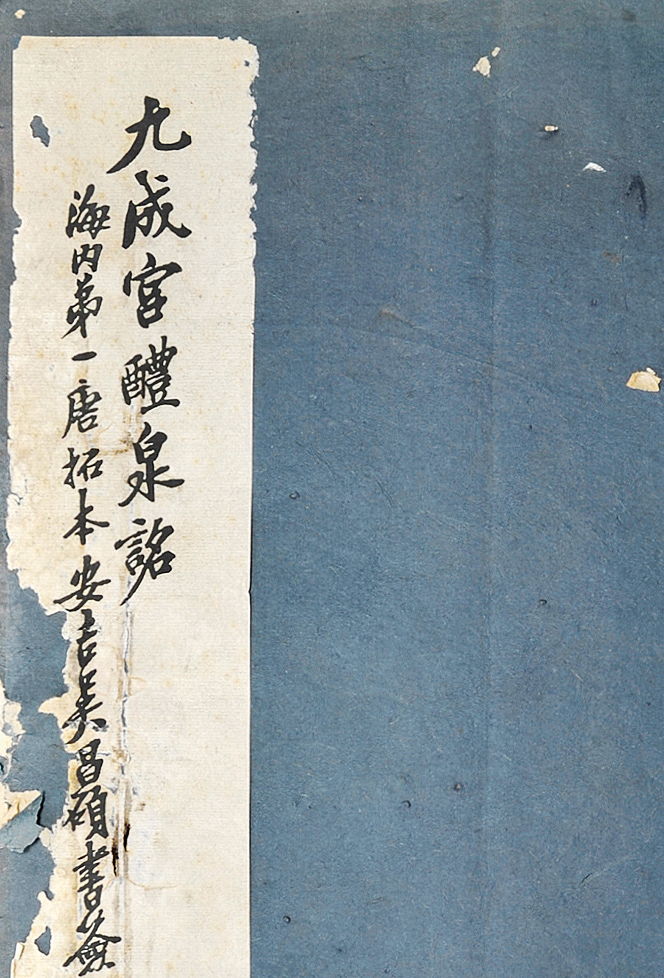 九成宮醴泉銘
海内弟一唐拓本安吉吴昌碩書簽